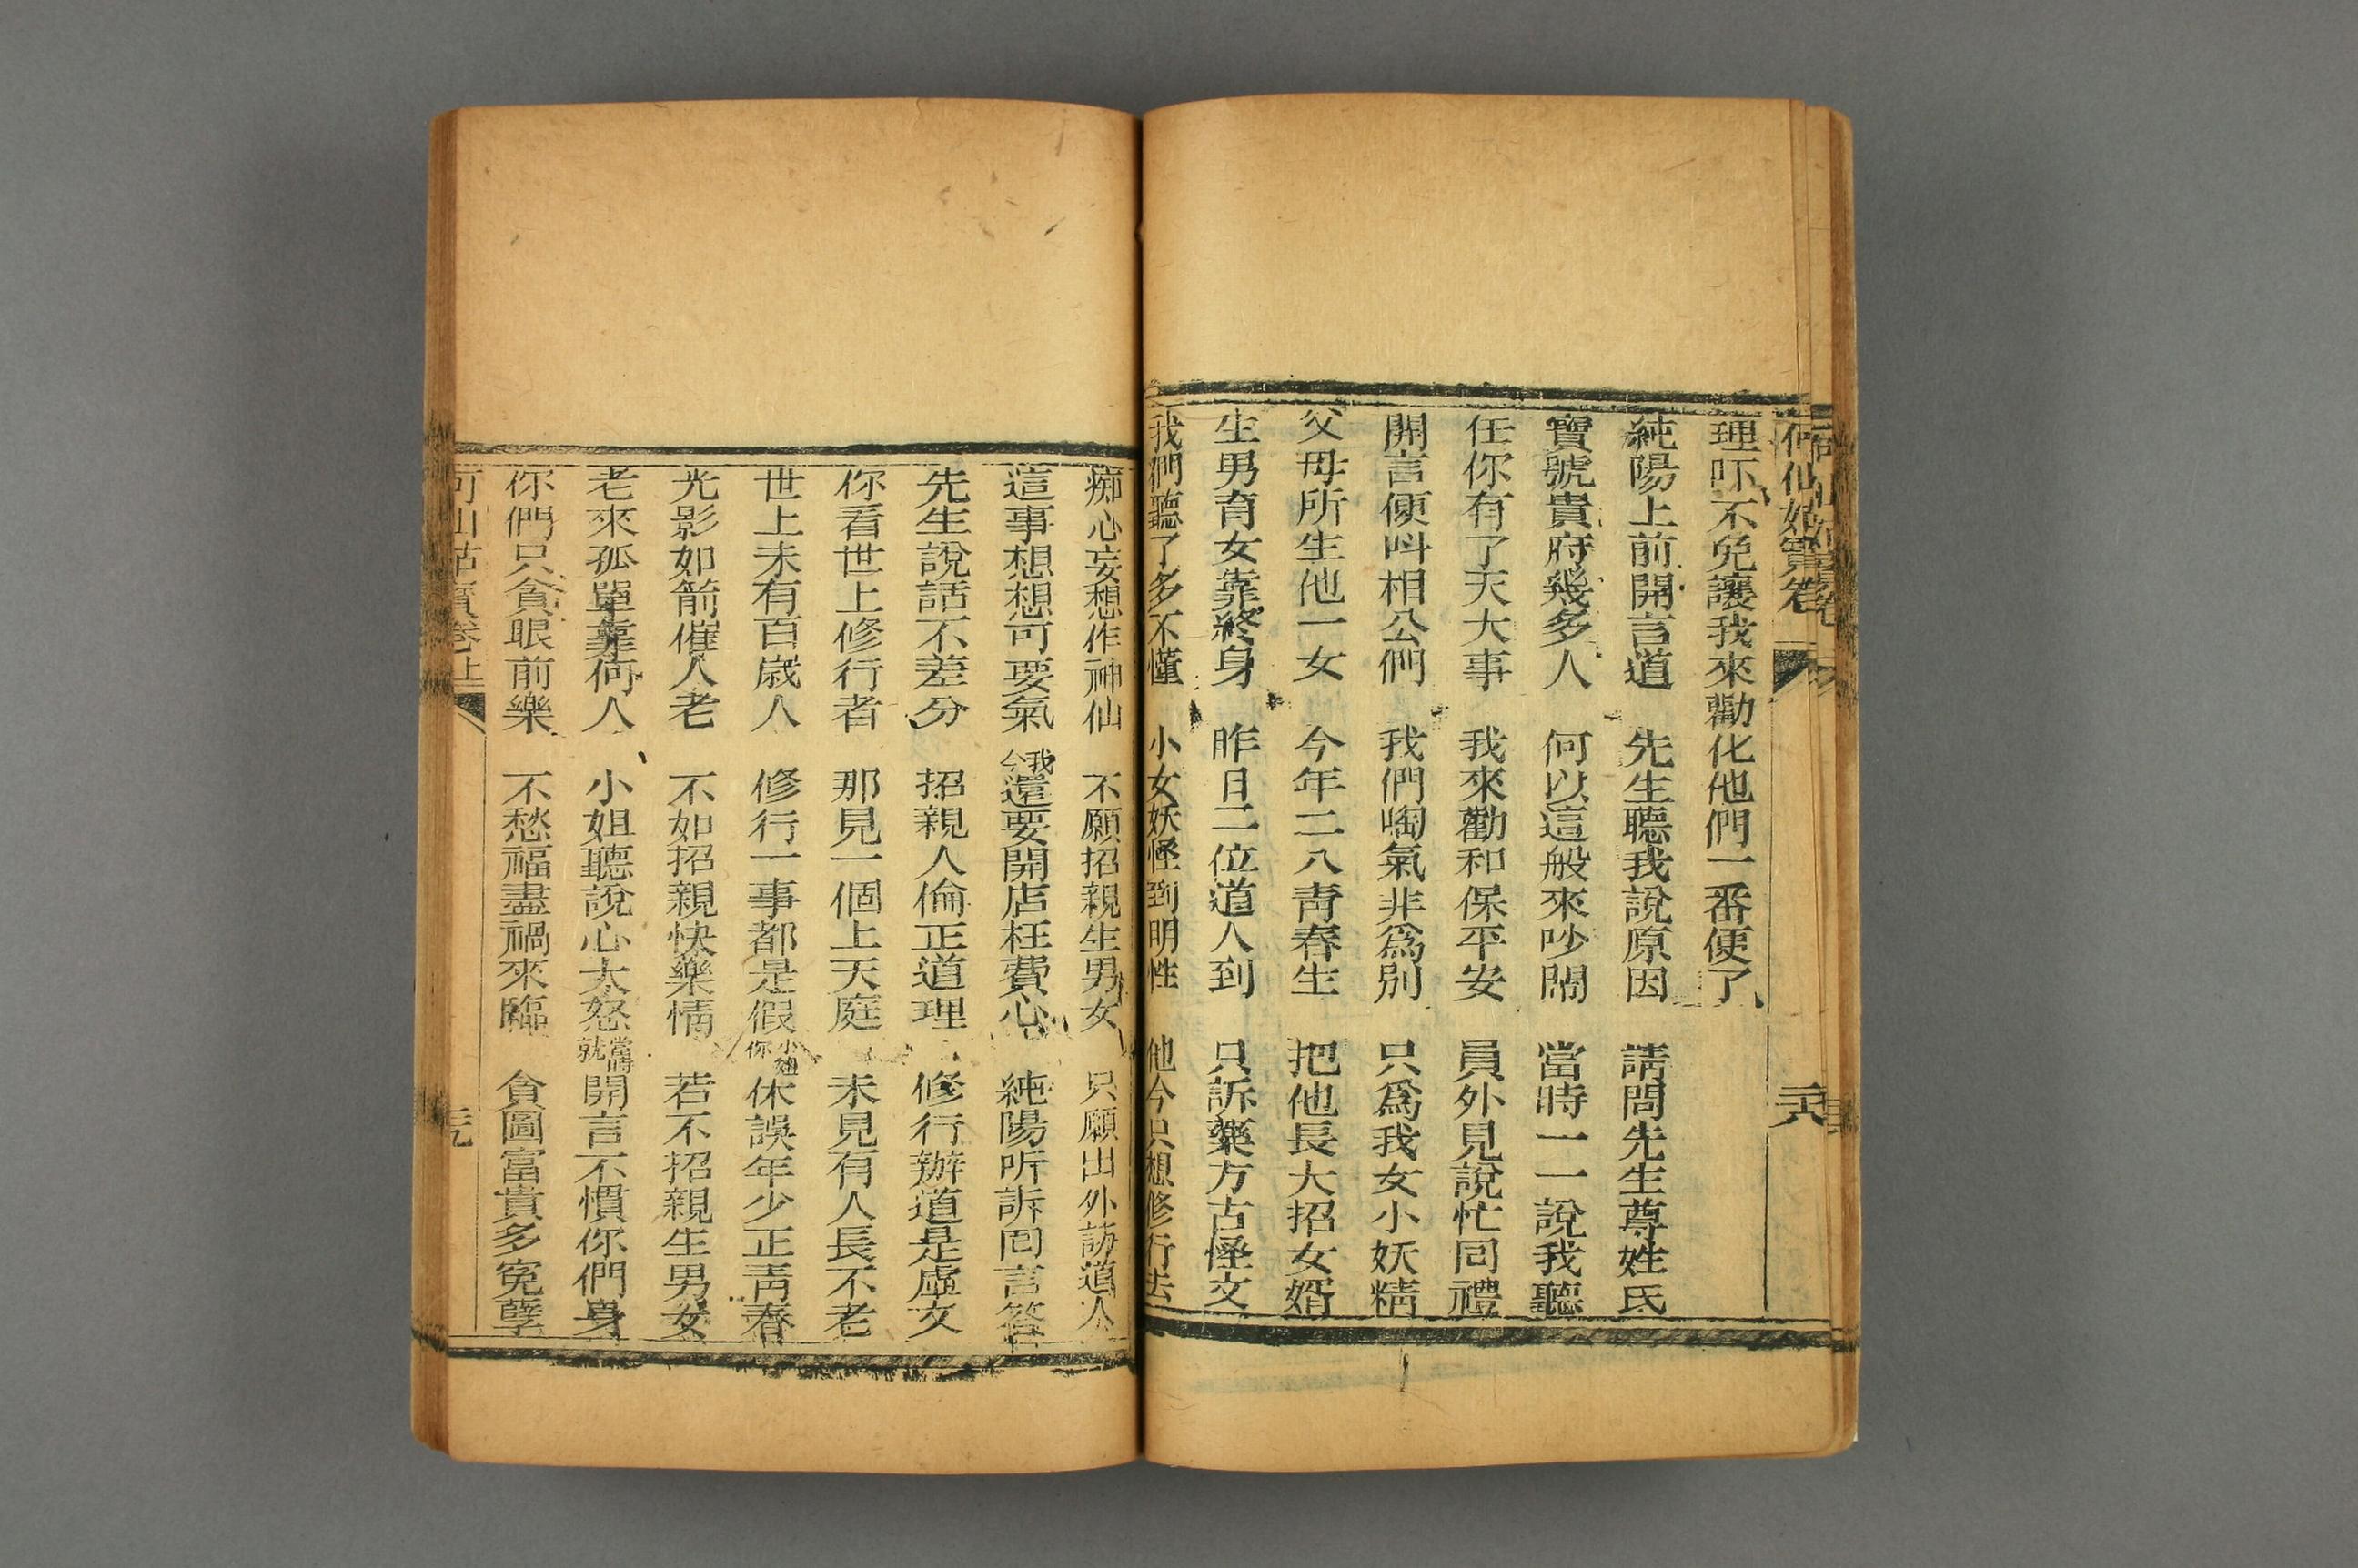 何仙姑寶卷
二八
理吓不免讓我來勸化他們一番便了
純陽上前開言道 先生聽我說原因 請問先生尊姓氏
寶號貴府幾多人 何以這般來吵閙 當時一一說我聽
任你有了天大事 我來勸和保平安 員外見說忙囘禮
開言便呌相公們 我們啕氣非爲別 只爲我女小妖精
父母所生他一女 今年二八靑春生 把他長大招女婿
生男育女靠終身 昨日二位道人到 只訴藥方古怪文
我們聽了多不懂 小女妖怪到明性 他今只想修行去
痴心妄想作神仙 不願招親生男女 只願出外訪道人
這事想想可要氣 我今還要開店枉費心 純陽听訴囘言答
先生說話不差分 招親人倫正道理 修行辦道是虛文
你看世上修行者 那見一個上天庭 未見有人長不老
世上未有百歲人 修行一事都是假 小姐你休誤年少正靑春
光影如箭催人老 不如招親快樂情 若不招親生男女
老來孤單靠何人 小姐聽說心大怒 當時就開言不慣你們身
你們只貪眼前樂 不愁福盡禍來臨 貪圖富貴多寃孽
何仙姑寶卷上
二九